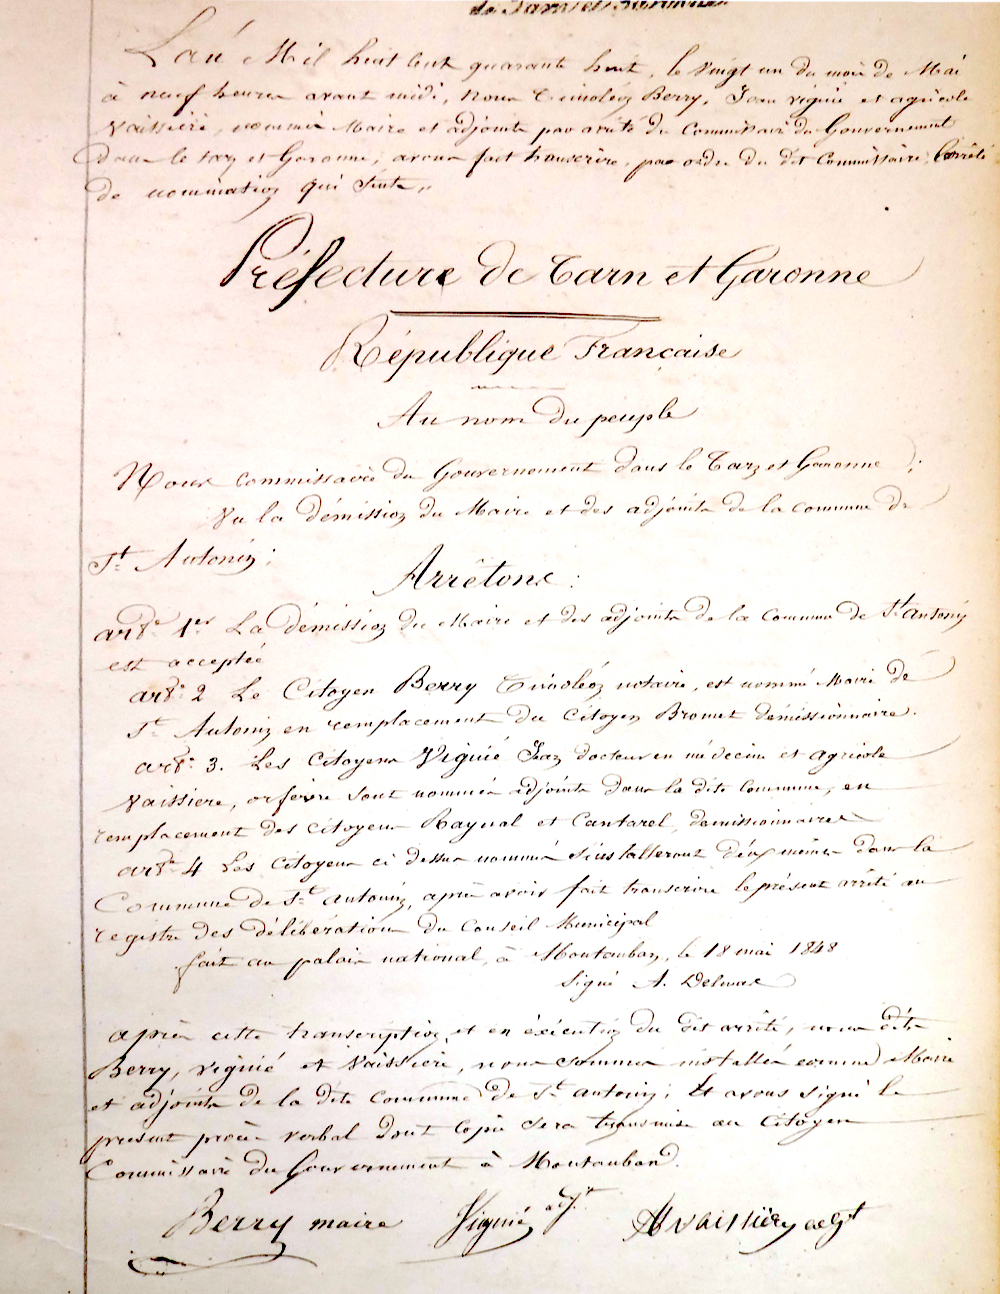 L'an Mil huit cent quarante huit, le vingt un du mois de Mai
à neuf heures avant midi, nous Timoléon Berry, Jean vignié et agricole
Vaissière, nommés Maire et adjoints par arrêté du Commissaire du Gouvernement
dans le tarn et Garonne, avons fait transcrire, par ordre du dit Commissaire, l'arrêté
de nomination qui suit,,
Préfecture de Tarn et Garonne
République Française
Au nom du peuple
Nous commissaire du Gouvernement dans le Tarn et Garonne ;
Vu la démission du Maire et des adjoints de la commune de
St Antonin ;
Arrêtons :
art. 1er La démission du Maire et des adjoints de la Commune de St antonin
est acceptée
art. 2 Le Citoyen Berry Timoléon notaire, est nommé Maire de
St Antonin en remplacement du Citoyen Bromet démissionnaire.
art. 3. Les Citoyens Vignié Jean docteur en médecine et agricole
Vaissiere, orfèvre sont nommés adjoints dans la dite Commune, en
remplacement des citoyens Raynal et Cantarel, demissionnaires
art. 4 Les Citoyens ci dessus nommés s'installeront d'eux mêmes dans la
Commune de St antonin, après avoir fait transcrire le présent arrêté au
registre des délibérations du Conseil Municipal
fait au palais national, à Montauban, le 18 mai 1848
Signé A. Delmas
après cette transcription, et en éxécution du dit arrêté, nous dits
Berry, vignié et Vaissière, nous sommes installés comme Maire
et adjoints de la dite commune de St antonin ; Et avons signé le
présent procès verbal dont copie sera transmise au Citoyen
Commissaire du Gouvernement à Montauban.
Berry maire Vignié adjt Avaissière adjt